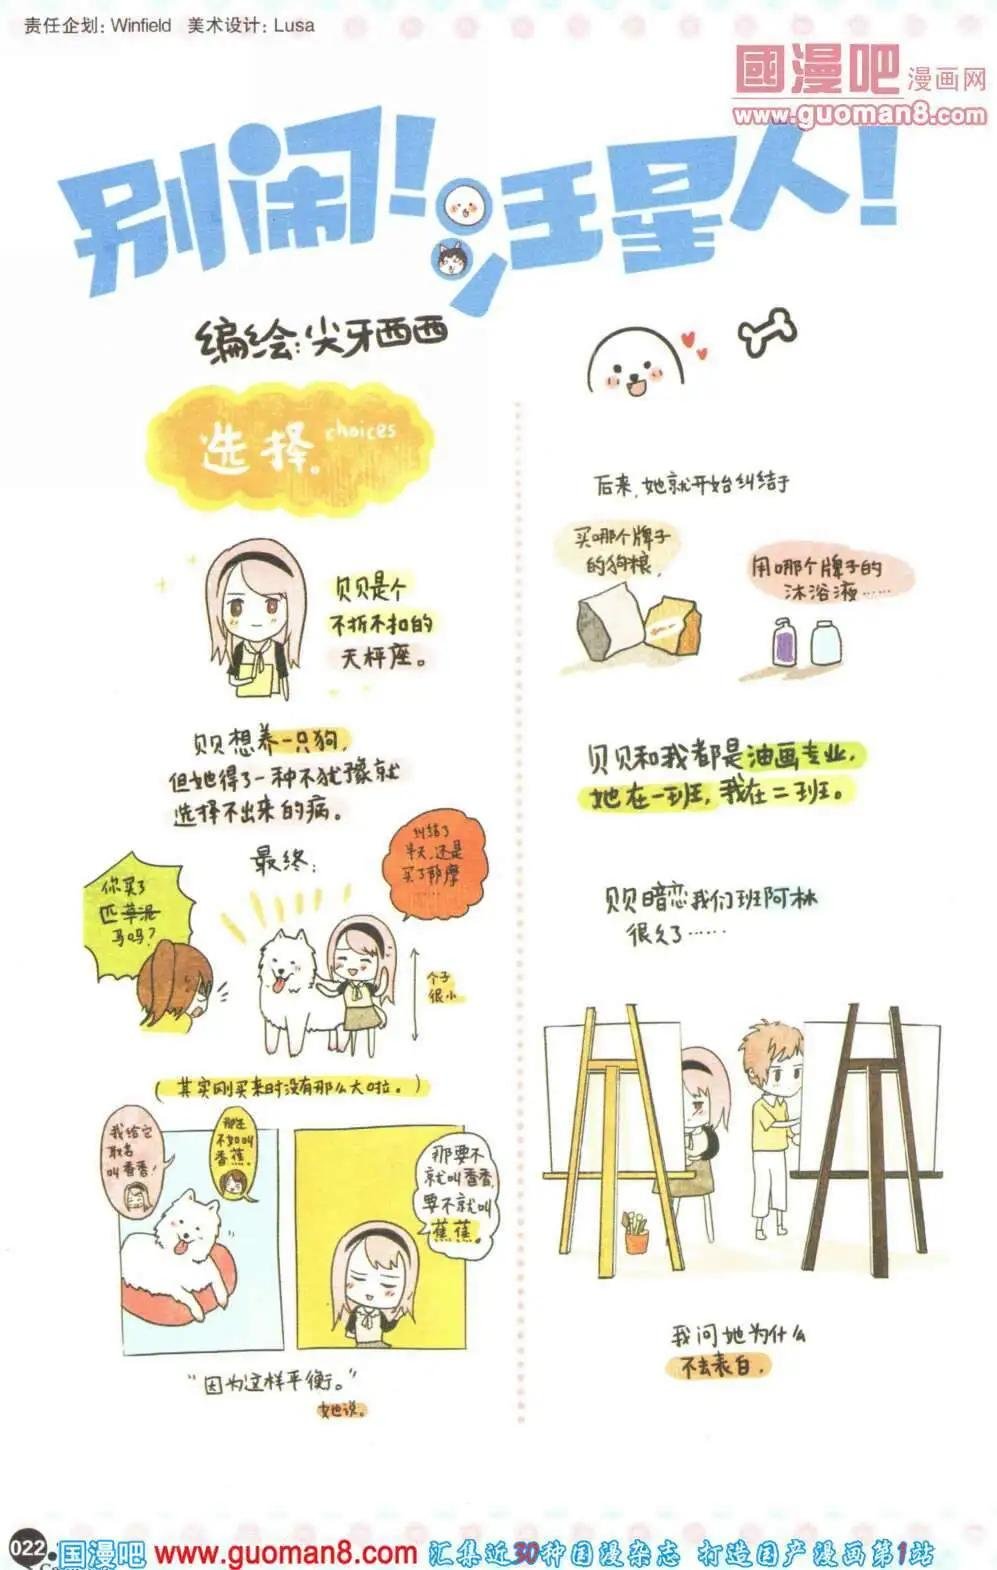 责任企划：Winfield 美术设计：Lusa
國漫吧漫画网
www.guoman8.com
别闹！汪星人！
编绘：尖牙西西
选择。choices
贝贝是个
不折不扣的
天秤座。
贝贝想养一只狗，
但她得了一种不犹豫就
选择不出来的病。
最终：
你买了
匹草泥
马吗？
纠结了
半天，还是
买了萨摩
……
个子
很小
（其实刚买来时没有那么大啦。）
我给它
取名
叫香香！
那还
不如叫
香蕉。
那要不
就叫香香，
要不就叫
蕉蕉。
“因为这样平衡。”
她说。
后来，她就开始纠结于
买哪个牌子
的狗粮，
用哪个牌子的
沐浴液……
贝贝和我都是油画专业，
她在一班，我在二班。
贝贝暗恋我们班阿林
很久了……
我问她为什么
不去表白，
022
国漫吧 www.guoman8.com 汇集近30种国漫杂志 打造国产漫画第1站